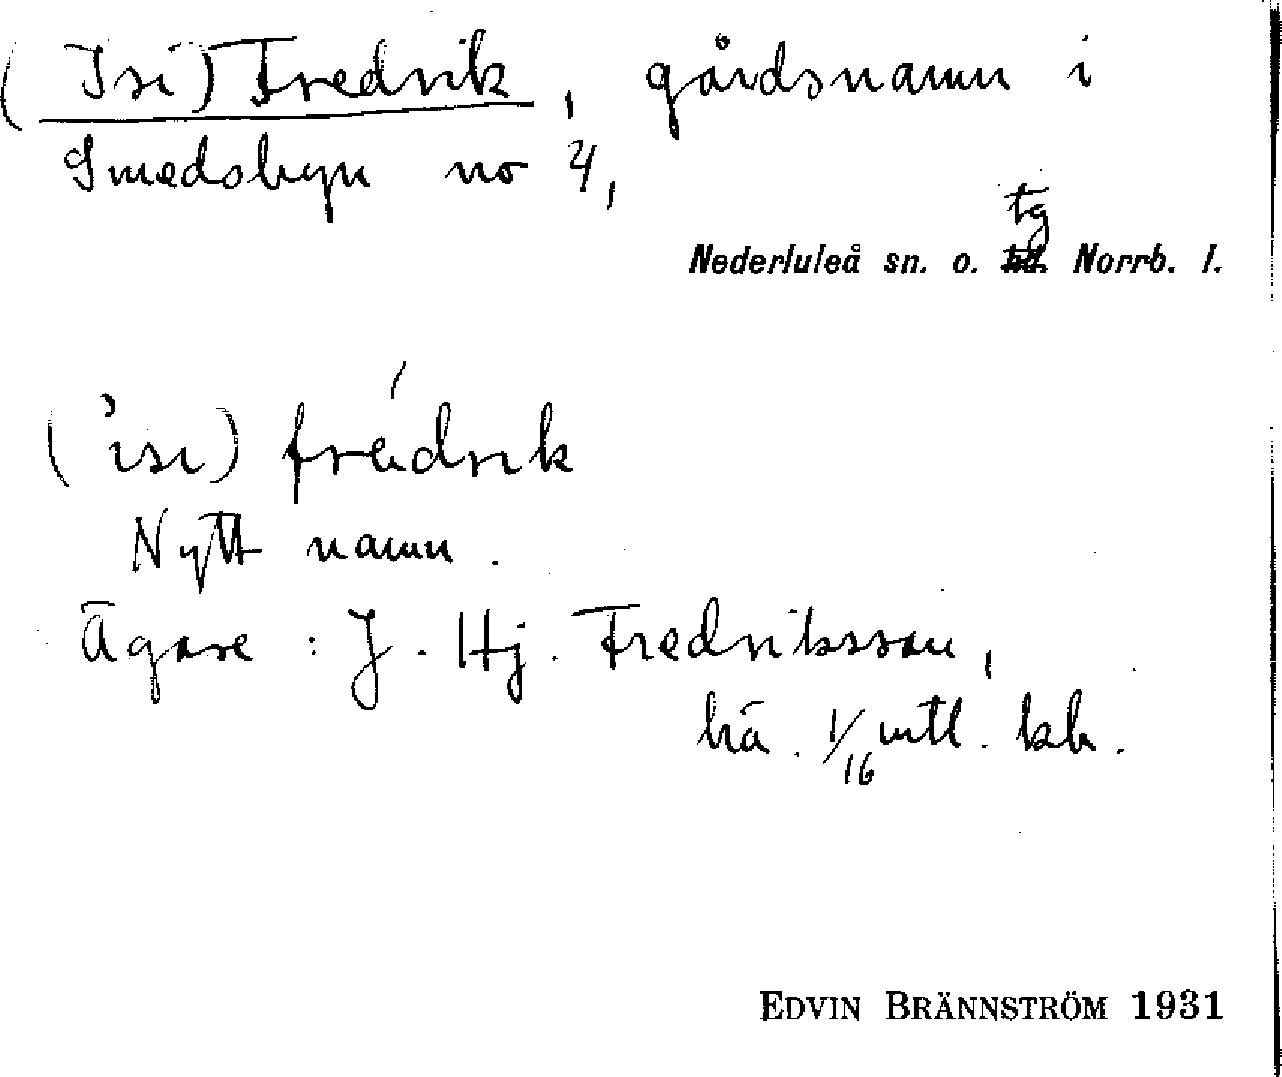 (Isi) Fredrik, gårdsnamn i
Smedsbyn no 4,
tg
Nederluleå sn. o. hd. Norrb. l.
(ˈisi) freˊdrik
Nytt namn.
Ägare: J. Hj. Fredriksson,
hä. 1/16 mtl. kh.
EDVIN BRÄNNSTRÖM 1931